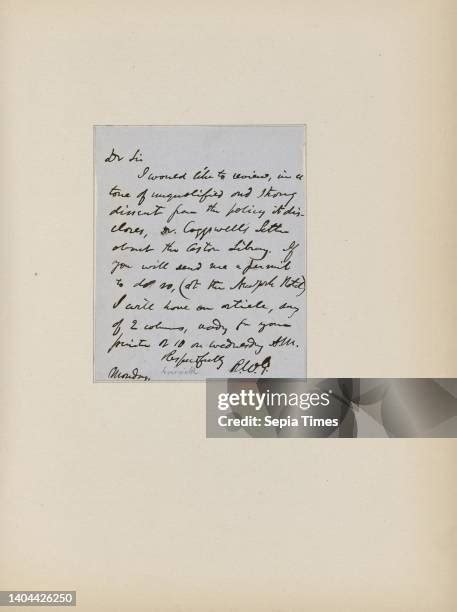 Dr Sir
I would like to review, in a
tone of unqualified and strong
dissent from the policy it dis-
closes, Dr. Coggswell's letter
about the Astor Library. If
you will send me a permit
to do so, (at the New York Hotel)
I will have an article, say
of 2 columns, ready for your
printer at 10 on Wednesday A.M.
Respectfully
R.W.G.
Monday.
gettyimages
Credit: Sepia Times
1104426250